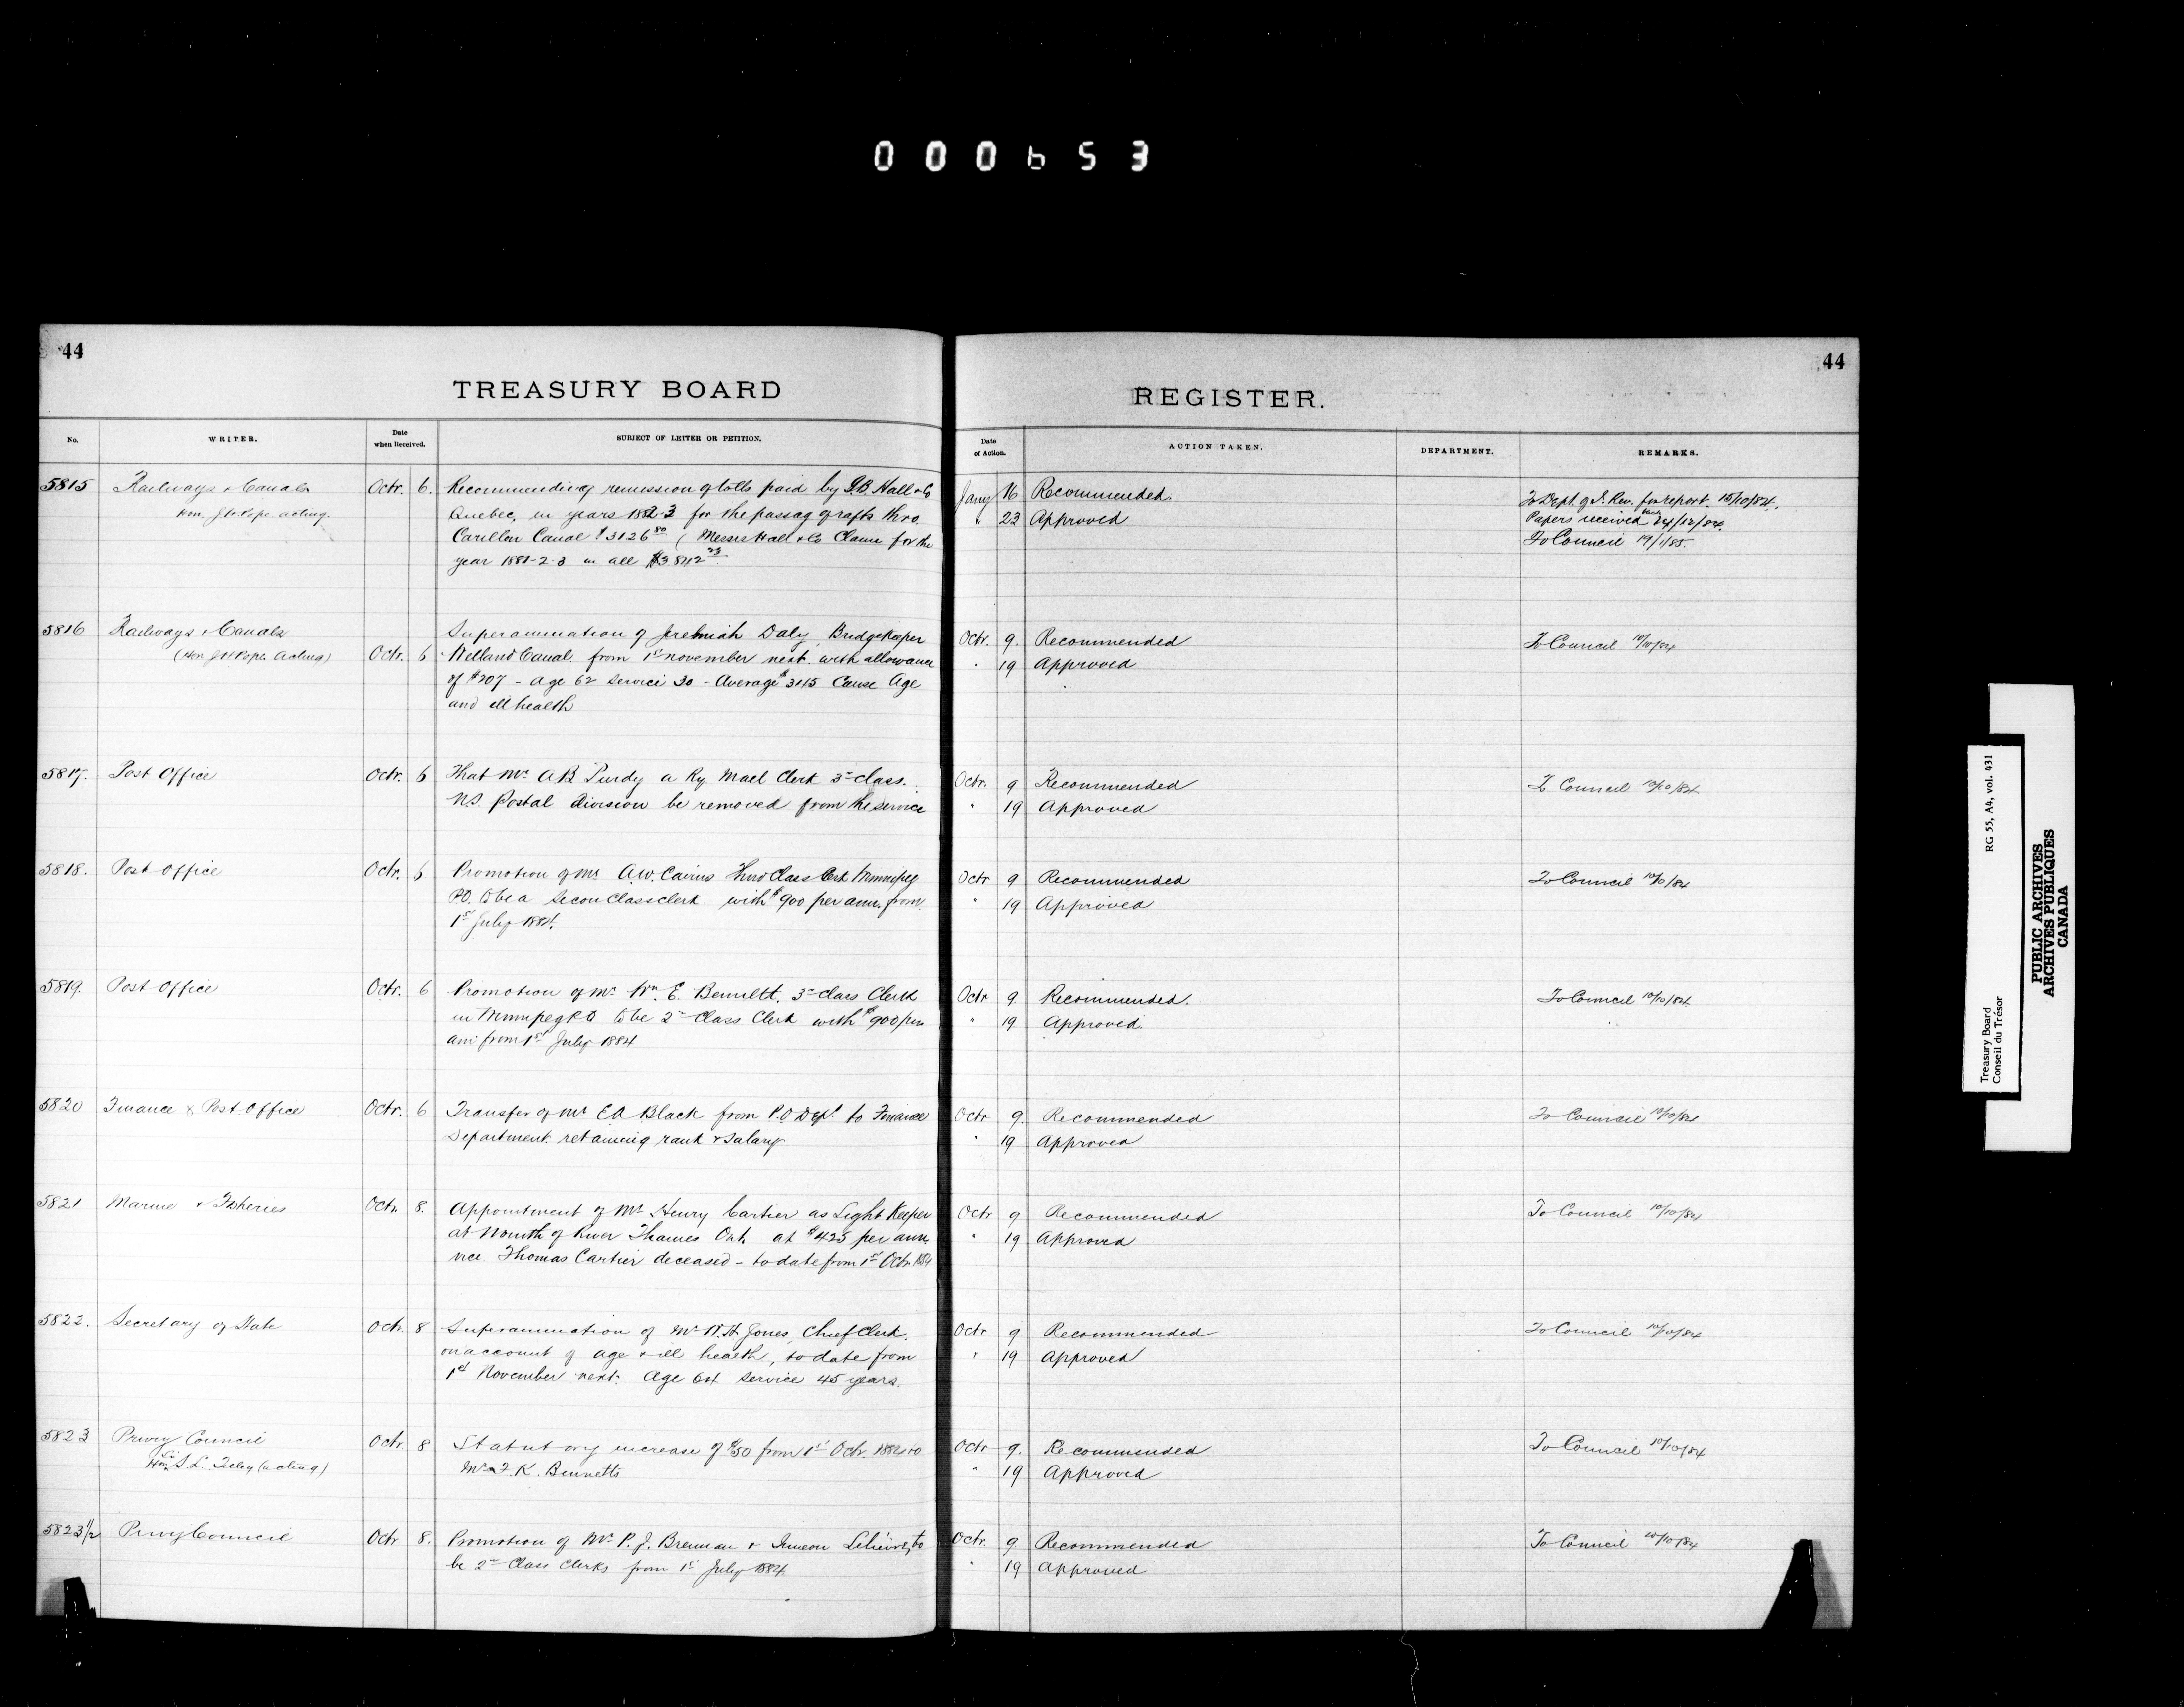 000653
44
44
TREASURY BOARD
REGISTER.
No.
WRITER.
Date when Received.
SUBJECT OF LETTER OR PETITION.
Date of Action.
ACTION TAKEN.
DEPARTMENT.
REMARKS.
5815 Railways & Canals Octr. 6. Recommending remission of tolls paid by G.B. Hall & Co Jany 16 Recommended. To Dept. of I. Rev. for report. 15/10/84.
Hon. J.H. Pope acting. Quebec, in years 1882-3 for the passag of rafts thro " 23 Approved Papers received back 24/12/84.
Carillon Canal $3126 80 (Messrs Hall & Co Claim for the To Council 19/1/85.
year 1881-2-3 in all $3.842
5816 Railways & Canals Superannuation of Jeremiah Daly Bridgekeeper Octr. 9. Recommended To Council 10/10/84
(Hon J H Pope Acting) Octr. 6 Welland Canal from 1st november next. with allowance " 19 Approved
of $207 - age 62 service 30 - Average $345 Cause Age
and ill health
5817. Post Office Octr. 6 That Mr A B Purdy a Ry Mail Clerk 3rd class. Octr. 9 Recommended To Council 10/10/84
N.S. Postal division be removed from the service " 19 Approved
5818. Post Office Octr. 6 Promotion of Mr A.W. Cairns Third Class Clerk Winnipeg Octr 9 Recommended To Council 10/10/84
P.O. to be a Secon Class clerk with $900 per ann. from " 19 Approved
1st July 1884.
5819. Post Office Octr. 6 Promotion of Mr Wm. E. Bennett. 3rd class Clerk Octr 9 Recommended. To Council 10/10/84
in Winnipeg P.O to be 2nd Class Clerk with $900 per " 19 Approved.
ann from 1st July 1884
5820 Finance & Post Office Octr. 6 Transfer of Mr E A Black from P.O Dept. to Finance Octr 9. Recommended To Council 10/10/84
Department retaining rank & salary " 19 Approved
5821 Marine & Fisheries Octr. 8. Appointment of Mr Henry Cartier as Light Keeper Octr 9 Recommended To Council 10/10/84
at Mouth of River Thames Ont. at $425 per ann. " 19 Approved
vice Thomas Cartier deceased - to date from 1st Octr. 1884
5822. Secretary of State Octr. 8 Superannuation of Mr W.H. Jones, Chief Clerk. Octr 9 Recommended To Council 10/10/84
on account of age & ill health, to date from " 19 Approved
1st November next. Age 64 service 45 years.
5823 Privy Council Octr. 8 Statutory increase of $50 from 1st Octr. 1884 to Octr 9. Recommended To Council 10/10/84
Hon. Sir S.L. Tilley (acting) Mr F.K. Bennetts " 19 Approved
5823 1/2 Privy Council Octr 8. Promotion of Mr P.J. Brennan & Simeon to Octr. 9 Recommended To Council 10/10/84
be 2nd Class Clerks from 1st July 1884. " 19 Approved
Treasury Board RG 55, A4, vol. 431
Conseil du Trésor
PUBLIC ARCHIVES
ARCHIVES PUBLIQUES
CANADA